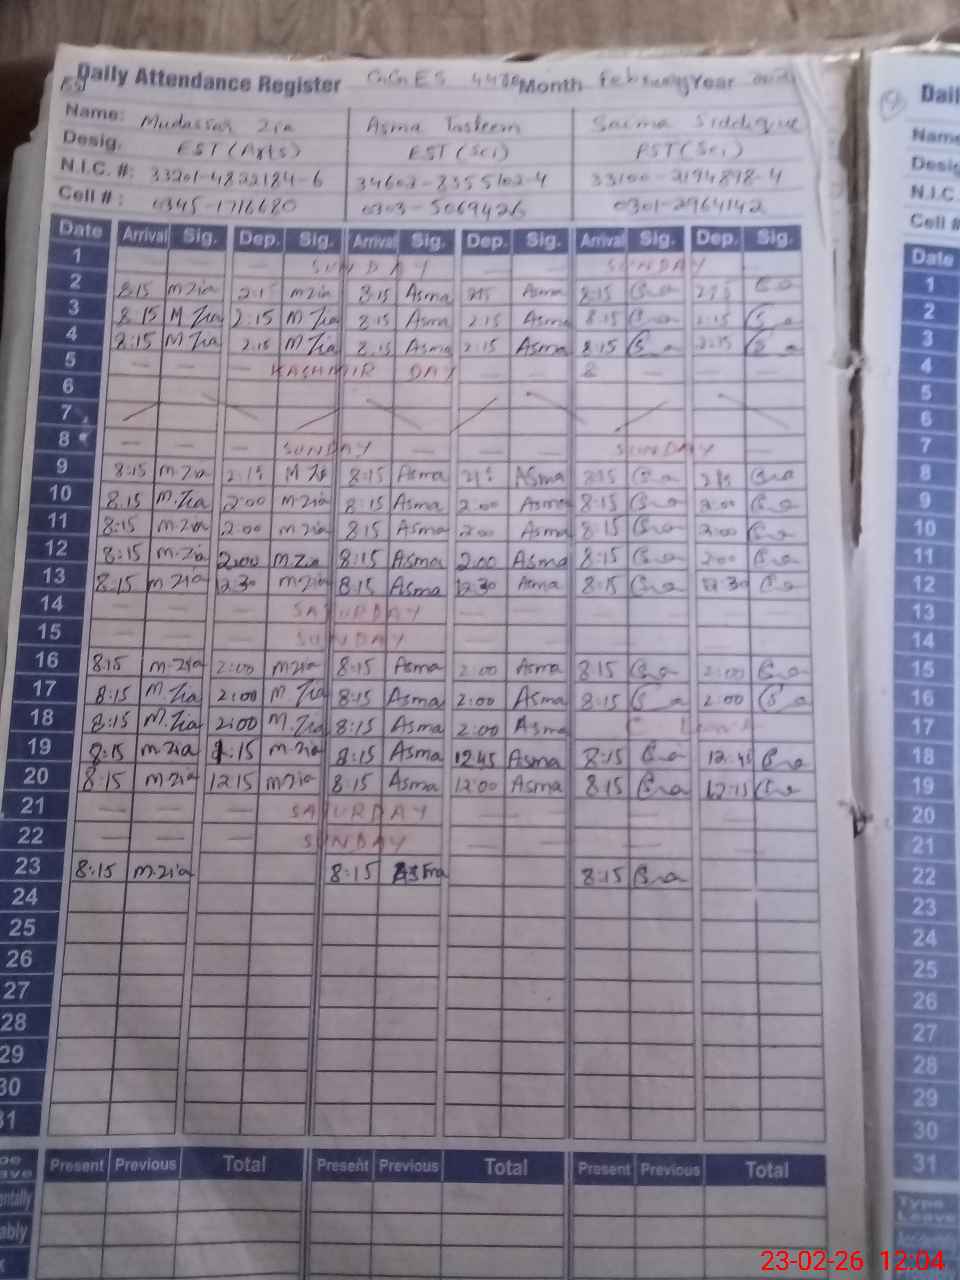 Daily Attendance Register GGES Month February Year
Name: Mudassar Zia Asma Tasleem Saima Siddique
Desig. EST (Arts) EST (Sci) PST (Sci)
N.I.C. #: 33201-4822184-6 34603-8355102-4 33100-2194898-4
Cell #: 0345-1716680 0303-5069426 0301-2964142
Date Arrival Sig. Dep. Sig. Arrival Sig. Dep. Sig. Arrival Sig. Dep. Sig.
1 SUNDAY SUNDAY
2 8:15 m zia 2:15 m zia 8:15 Asma 2:15 Asma 8:15 2:15
3 8:15 M Zia 2:15 M Zia 8:15 Asma 2:15 Asma 8:15 2:15
4 8:15 M Zia 2:15 M Zia 8:15 Asma 2:15 Asma 8:15 2:15
5 KASHMIR DAY 8
6
7
8 SUNDAY SUNDAY
9 8:15 m-zia 2:15 M Zia 8:15 Asma 2:15 Asma 8:15 2:15
10 8:15 M.Zia 2:00 m-zia 8:15 Asma 2:00 Asma 8:15 2:00
11 8:15 m-zia 2:00 m zia 8:15 Asma 2:00 Asma 8:15 2:00
12 8:15 m-Zia 2:00 m.Zia 8:15 Asma 2:00 Asma 8:15 2:00
13 8:15 m zia 12:30 m-zia 8:15 Asma 12:30 Asma 8:15 12:30
14 SATURDAY
15 SUNDAY
16 8:15 m-zia 2:00 m zia 8:15 Asma 2:00 Asma 8:15 2:00
17 8:15 M.Zia 2:00 M Zia 8:15 Asma 2:00 Asma 8:15 2:00
18 8:15 M.Zia 2:00 M.Zia 8:15 Asma 2:00 Asma C
19 8:15 m-zia 1:15 m-zia 8:15 Asma 12:45 Asma 8:15 12:45
20 8:15 m-zia 12:15 m-zia 8:15 Asma 12:00 Asma 8:15 12:15
21 SATURDAY
22 SUNDAY
23 8:15 m-zia 8:15 Asma 8:15
24
25
26
27
28
29
30
31
Present Previous Total Present Previous Total Present Previous Total
Name
Desig
N.I.C
Cell #
Date
1
2
3
4
5
6
7
8
9
10
11
12
13
14
15
16
17
18
19
20
21
22
23
24
25
26
27
28
29
30
31
Type
Leave
23-02-26 12:04